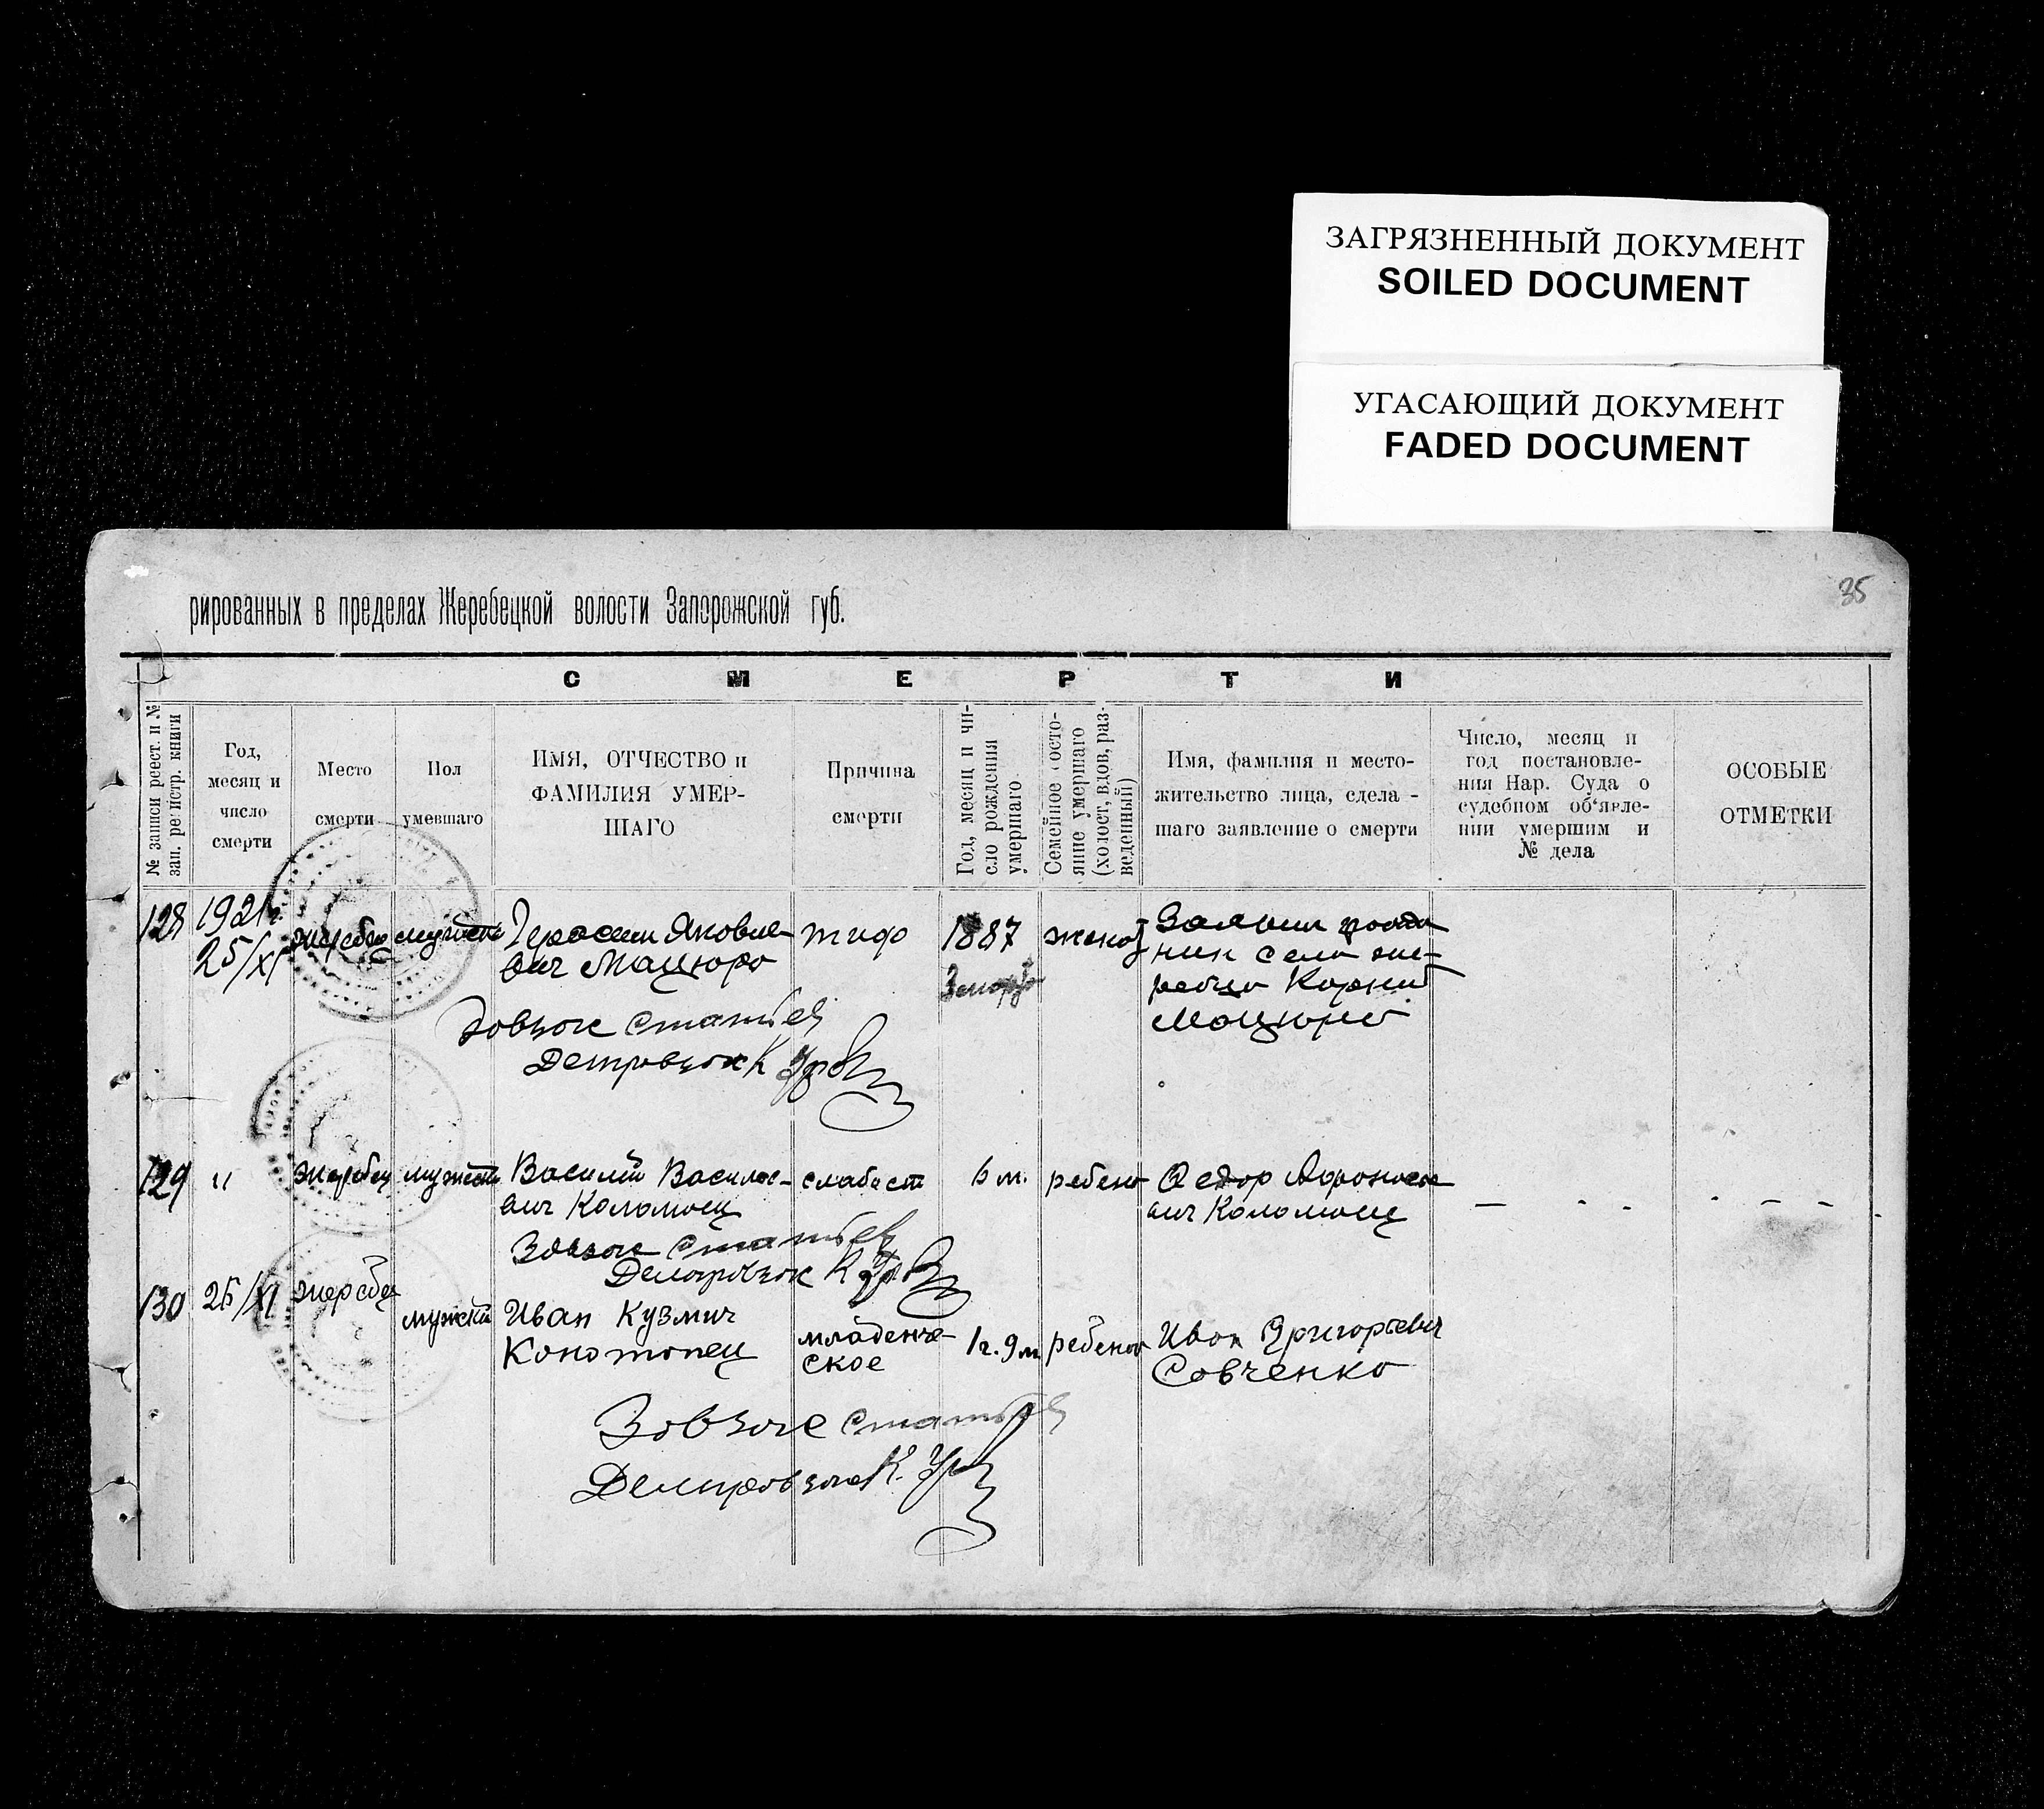 ЗАГРЯЗНЕННЫЙ ДОКУМЕНТ
SOILED DOCUMENT
УГАСАЮЩИЙ ДОКУМЕНТ
FADED DOCUMENT
35
рированных в пределах Жеребецкой волости Запорожской губ.
СМЕРТИ
№ записи реест. и №
зап. регистр. книги
Год,
месяц и
число
смерти
Место
смерти
Пол
умевшаго
ИМЯ, ОТЧЕСТВО и
ФАМИЛИЯ УМЕР-
ШАГО
Причина
смерти
Год, месяц и чи-
сло рождения
умершаго
Семейное состо-
яние умершаго
(холост, вдов, раз-
веденный)
Имя, фамилия и место-
жительство лица, сдела-
шаго заявление о смерти
Число, месяц и
год постановле-
ния Нар. Суда о
судебном об'явле-
нии умершим и
№ дела
ОСОБЫЕ
ОТМЕТКИ
128
1921г.
25/XI
Герасим Яковле-
вич Мацюра
тиф
1887
Заявил
нин села Же-
ребца Корний
Мацюра
Завзаг
К
129
"
Жеребец
мужск
Василий Василье-
вич Коломоец
слабост
6 м.
ребено
Федор
вич Коломоец
Завзаг
К
130
25/XI
Жеребе
мужски
Иван Кузмич
Конотопец
младенче-
ское
1г. 9м
ребенок
Иван Григорьевич
Савченко
Завзаг
К.